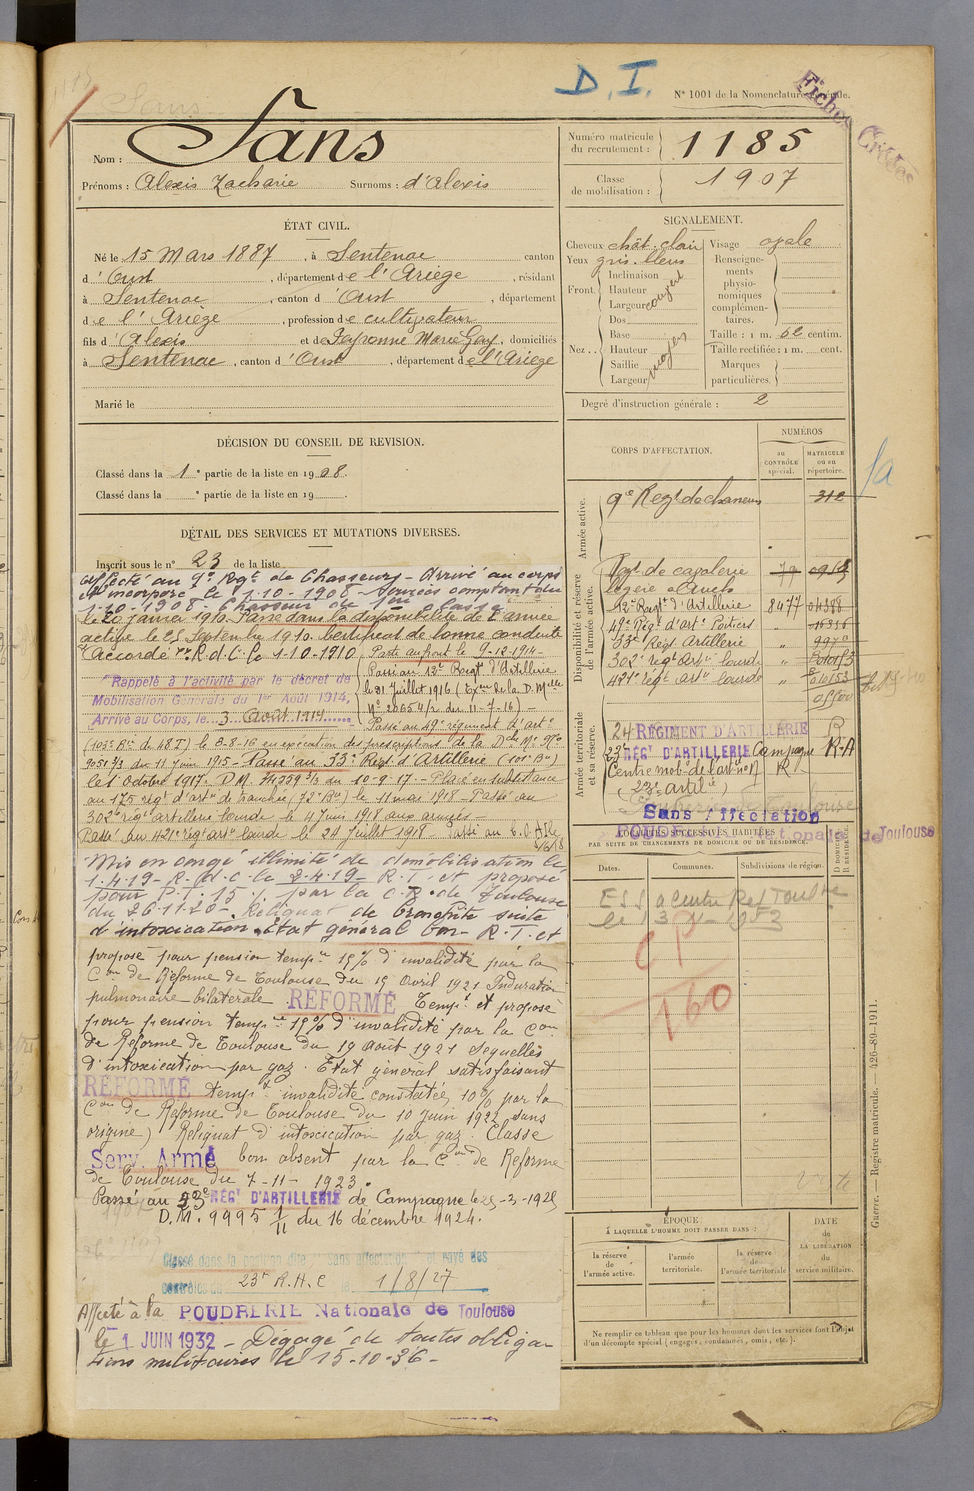 D. I.
N° 1001 de la Nomenclature générale.
Fiches Créées
Nom : Sans
Prénoms : Alexis Zacharie Surnoms : d'Alexis
Numéro matricule du recrutement : 1185
Classe de mobilisation : 1907
ÉTAT CIVIL.
Né le 15 Mars 1887, à Sentenac canton
d'Oust, département de l'Ariège, résidant
à Sentenac, canton d'Oust, département
de l'Ariège, profession de cultivateur
fils d'Alexis et de Feyronne Marie Gay, domiciliés
à Sentenac, canton d'Oust, département de l'Ariège
Marié le
SIGNALEMENT.
Cheveux chât. clair Visage ovale
Yeux gris-bleus
Front Inclinaison
Hauteur
Largeur moyen
Nez Dos
Base
Hauteur
Saillie
Largeur moyen
Renseignements physionomiques complémentaires.
Taille : 1 m. 62 centim.
Taille rectifiée : 1 m. cent.
Marques particulières.
Degré d'instruction générale : 2
DÉCISION DU CONSEIL DE REVISION.
Classé dans la 1e partie de la liste en 1908.
Classé dans la e partie de la liste en 19
DÉTAIL DES SERVICES ET MUTATIONS DIVERSES.
Inscrit sous le n° 23 de la liste
affecté au 9e Rgt de Chasseurs - Arrivé au corps
et incorporé le 1-10-1908 - Services comptant du
1-10-1908. Chasseur de 1ère classe
le 20 janvier 1910. Passé dans la disponibilité de l'armée
active le 25 Septembre 1910. Certificat de bonne conduite
Accordé R.d.C. le 1-10-1910
Rappelé à l'activité par le décret de
Mobilisation Générale du 1er Août 1914,
Arrivé au Corps, le 3 Août 1914
Parti au front le 9-12-1914-
Passé au 12e Regt d'Artillerie
le 21 Juillet 1916 (Exon de la D. Mlle
N° 20654/2 du 11-7-16) -
- Passé au 49e régiment d'arte
(103e Bie de 48 T) le 3-8-16 en exécution des prescriptions de la Dche Mle N°
9051 3/3 du 11 juin 1915 - Passé au 33e Regt d'Artillerie (101e Bie)
le 1 octobre 1917. D.M. 3/3 du 10-9-17 - Placé en subsistance
au 175 régt d'artie de tranchée (73e Bie) le 11 mai 1918 - Passé au
302e régt artillerie lourde le 4 juin 1918 aux armées -
Passé au 421e régt artie lourde le 21 Juillet 1918
Mis en congé illimité de démobilisation le
1.4.19 - R.d.C. le 2-4-19 - R.T. et proposé
pour P.T. 15 % par la C.R. de Toulouse
du 26.11.20 -. Reliquat de bronchite suite
d'intoxication. État général bon - R.T. et
proposé pour pension tempre 15% d'invalidité par la
Con de Réforme de Toulouse du 15 Avril 1921 Induration
pulmonaire bilatérale RÉFORMÉ Tempt et proposé
pour pension tempre 15% d'invalidité par la Con
de Réforme de Toulouse du 19 Août 1921 Séquelles
d'intoxication par gaz. État général satisfaisant
RÉFORMÉ tempt invalidité constatée, 10% par la
Con de Réforme de Toulouse du 10 Juin 1922 (sans
origine) Reliquat d'intoxication par gaz. Classé
Serv. Armé bon absent par la Con de Réforme
de Toulouse du 7-11-1923.
Passé au 23e RÉGt D'ARTILLERIE de Campagne le 25-3-1925
D.M. 9995 1/11 du 16 décembre 1924.
Classé dans la position dite "Sans affectation" et rayé des
contrôles du 23e R.A.C le 1/8/27
Affecté à la POUDRERIE Nationale de Toulouse
le 1 JUIN 1932 - Dégagé de toutes obliga
tions militaires le 15-10-36 -
CORPS D'AFFECTATION.
NUMÉROS
au CONTRÔLE spécial.
MATRICULE ou au répertoire.
Armée active.
9e Regt de chasseurs 312
Disponibilité et réserve de l'armée active.
Regt de cavalerie
légère à Auch
12e Regt d'Artillerie 8477 04388
49e Régt d'arte Poitiers "
33e Régt Artillerie " 9970
302e régt artie lourde "
421e régt artie lourde "
Armée territoriale et sa réserve.
24 RÉGIMENT D'ARTILLERIE
23e RÉGt D'ARTILLERIE Campagne R.A
Centre mob. de l'art. n° 17
(23e artilie)
Poudrerie de Toulouse
Sans Affectation
POUDRERIE Nationale de Toulouse
LOCALITÉS SUCCESSIVES HABITÉES
PAR SUITE DE CHANGEMENTS DE DOMICILE OU DE RÉSIDENCE.
Dates. Communes. Subdivisions de région.
D DOMICILE R RÉSIDENCE.
CP
160
ÉPOQUE
À LAQUELLE L'HOMME DOIT PASSER DANS :
la réserve de l'armée active.
l'armée territoriale.
la réserve de l'armée territoriale
DATE de LA LIBÉRATION du service militaire.
Ne remplir ce tableau que pour les hommes dont les services font l'objet
d'un décompte spécial (engagés, condamnés, omis, etc.).
Guerre. — Registre matricule. — 426-89-1911.